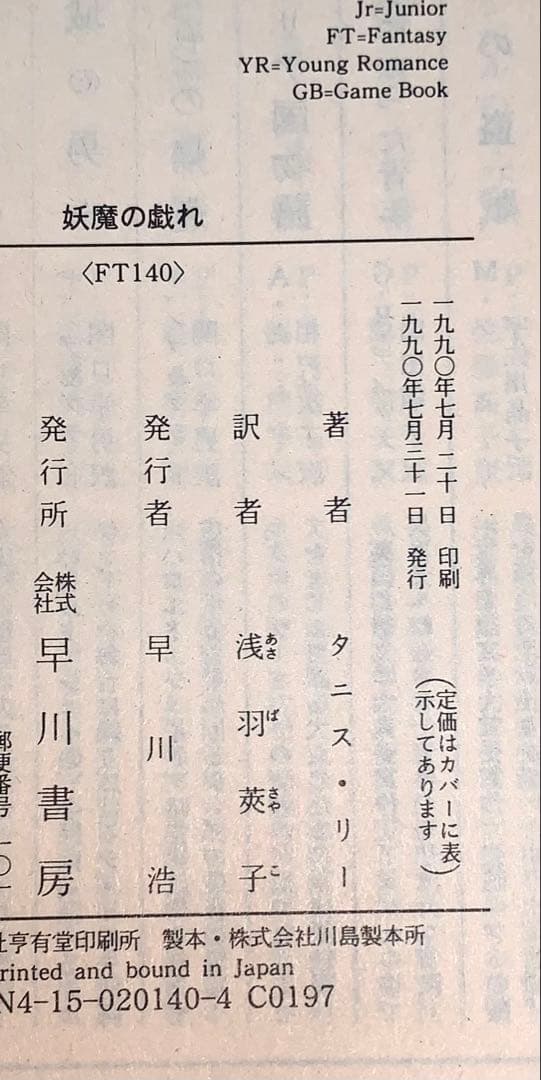 Jr=Junior
FT=Fantasy
YR=Young Romance
GB=Game Book
妖魔の戯れ
〈FT140〉
一九九〇年七月二十日 印刷
一九九〇年七月三十一日 発行
(定価はカバーに表
示してあります)
著者 タニス・リー
訳者 浅羽莢子
あさ ば さや こ
発行者 早川 浩
発行所 株式会社 早川書房
郵便番号 一〇一
社亨有堂印刷所 製本・株式会社川島製本所
rinted and bound in Japan
N4-15-020140-4 C0197